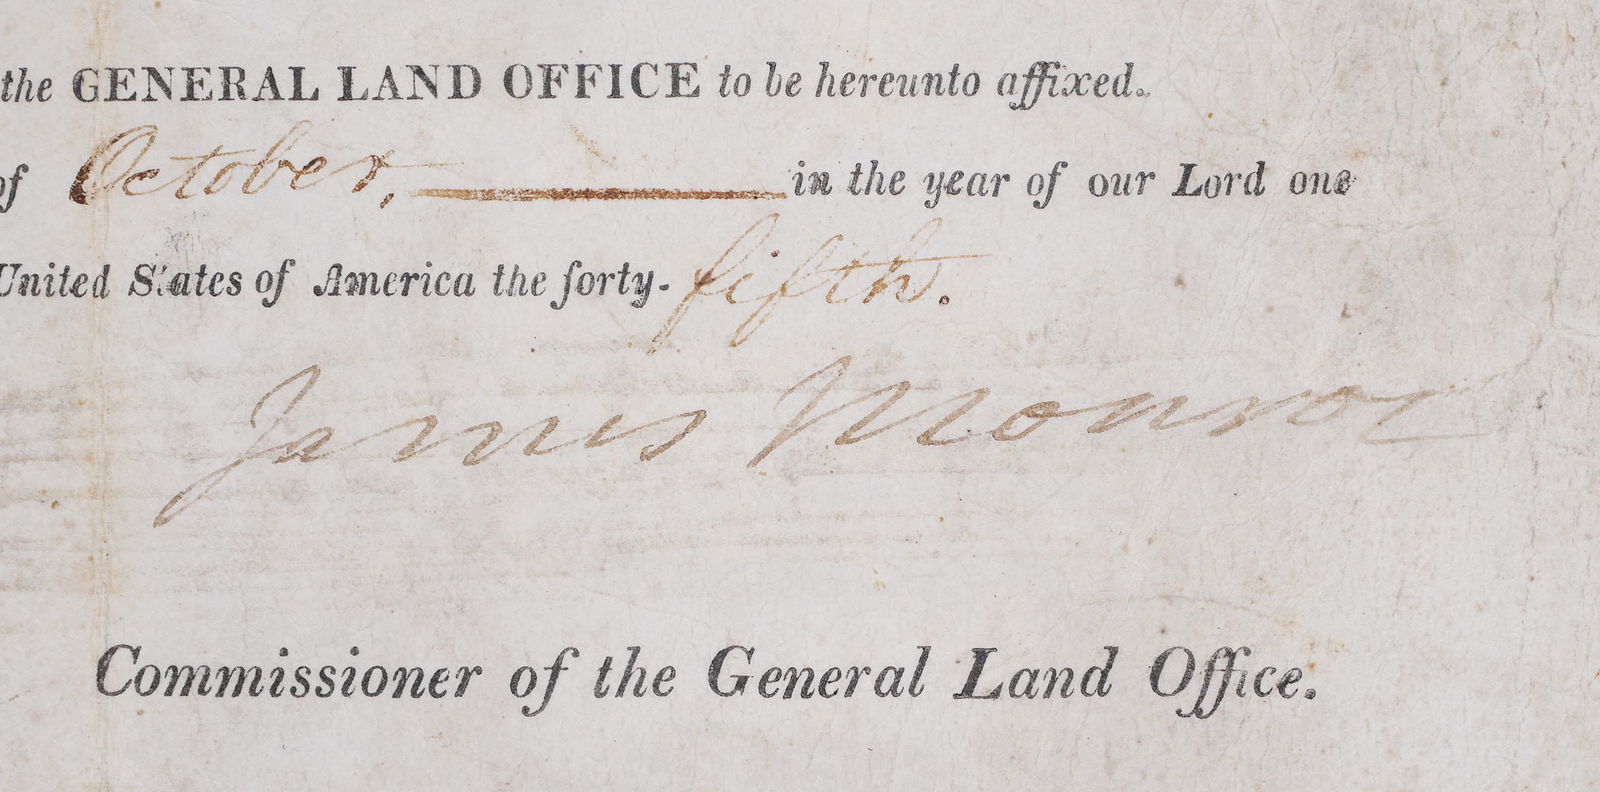 the GENERAL LAND OFFICE to be hereunto affixed.
of October, in the year of our Lord one
United States of America the forty-fifth.
James Monroe
Commissioner of the General Land Office.